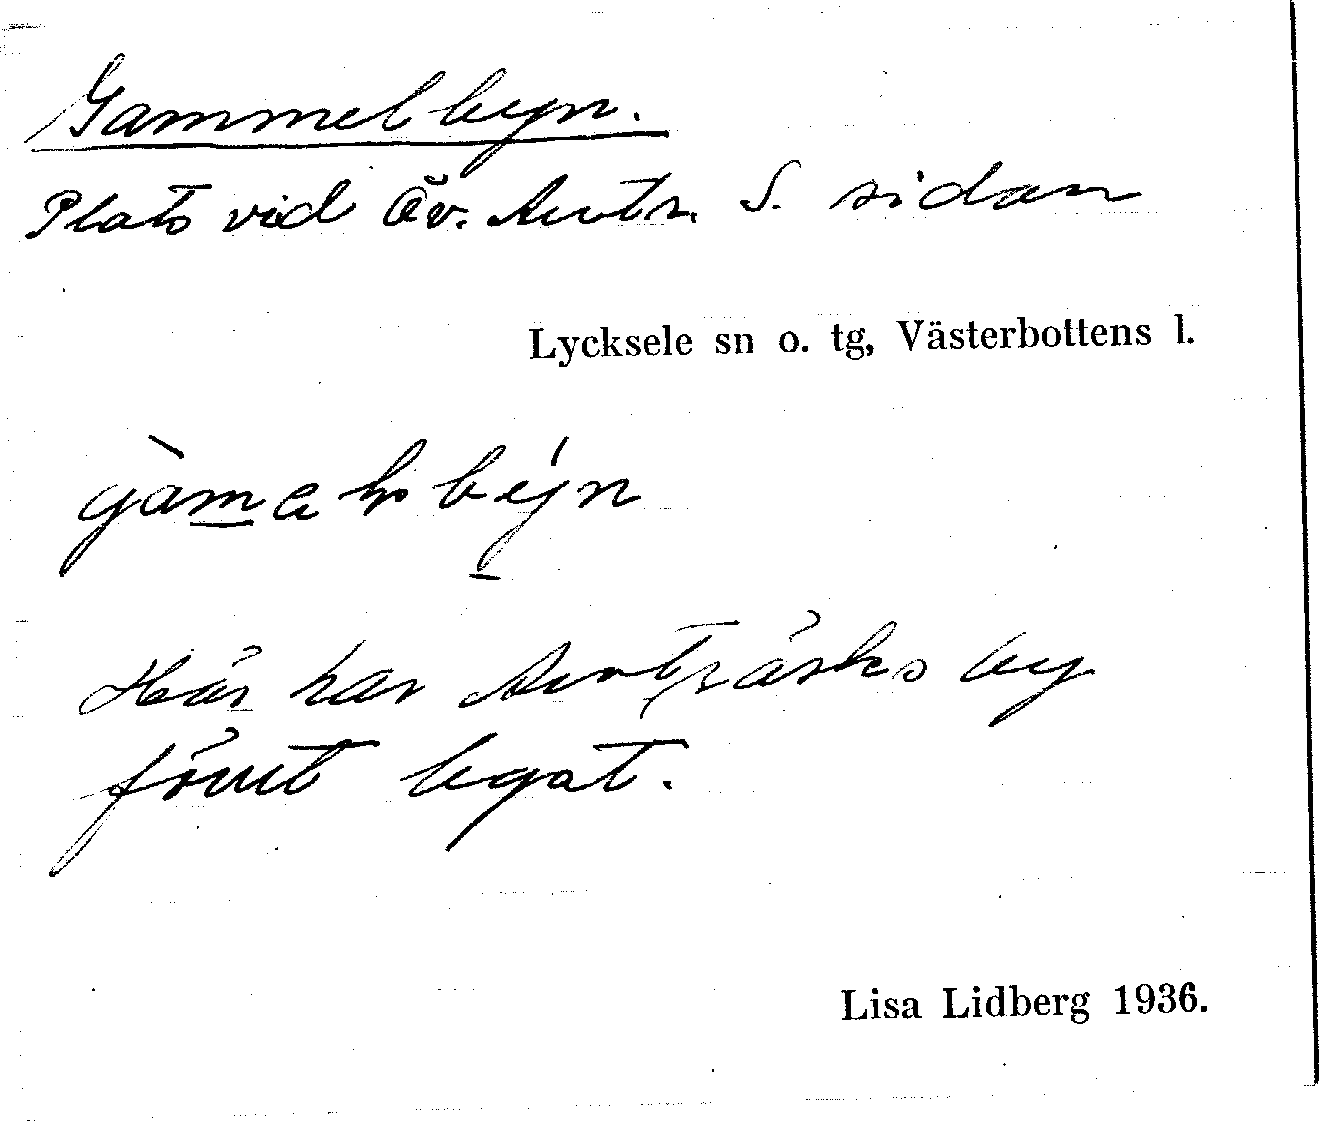 Gammelbyn.
Plats vid Öv. Avatr. S. sidan
Lycksele sn o. tg, Västerbottens l.
Här har Avaträsks by
förut legat.
Lisa Lidberg 1936.